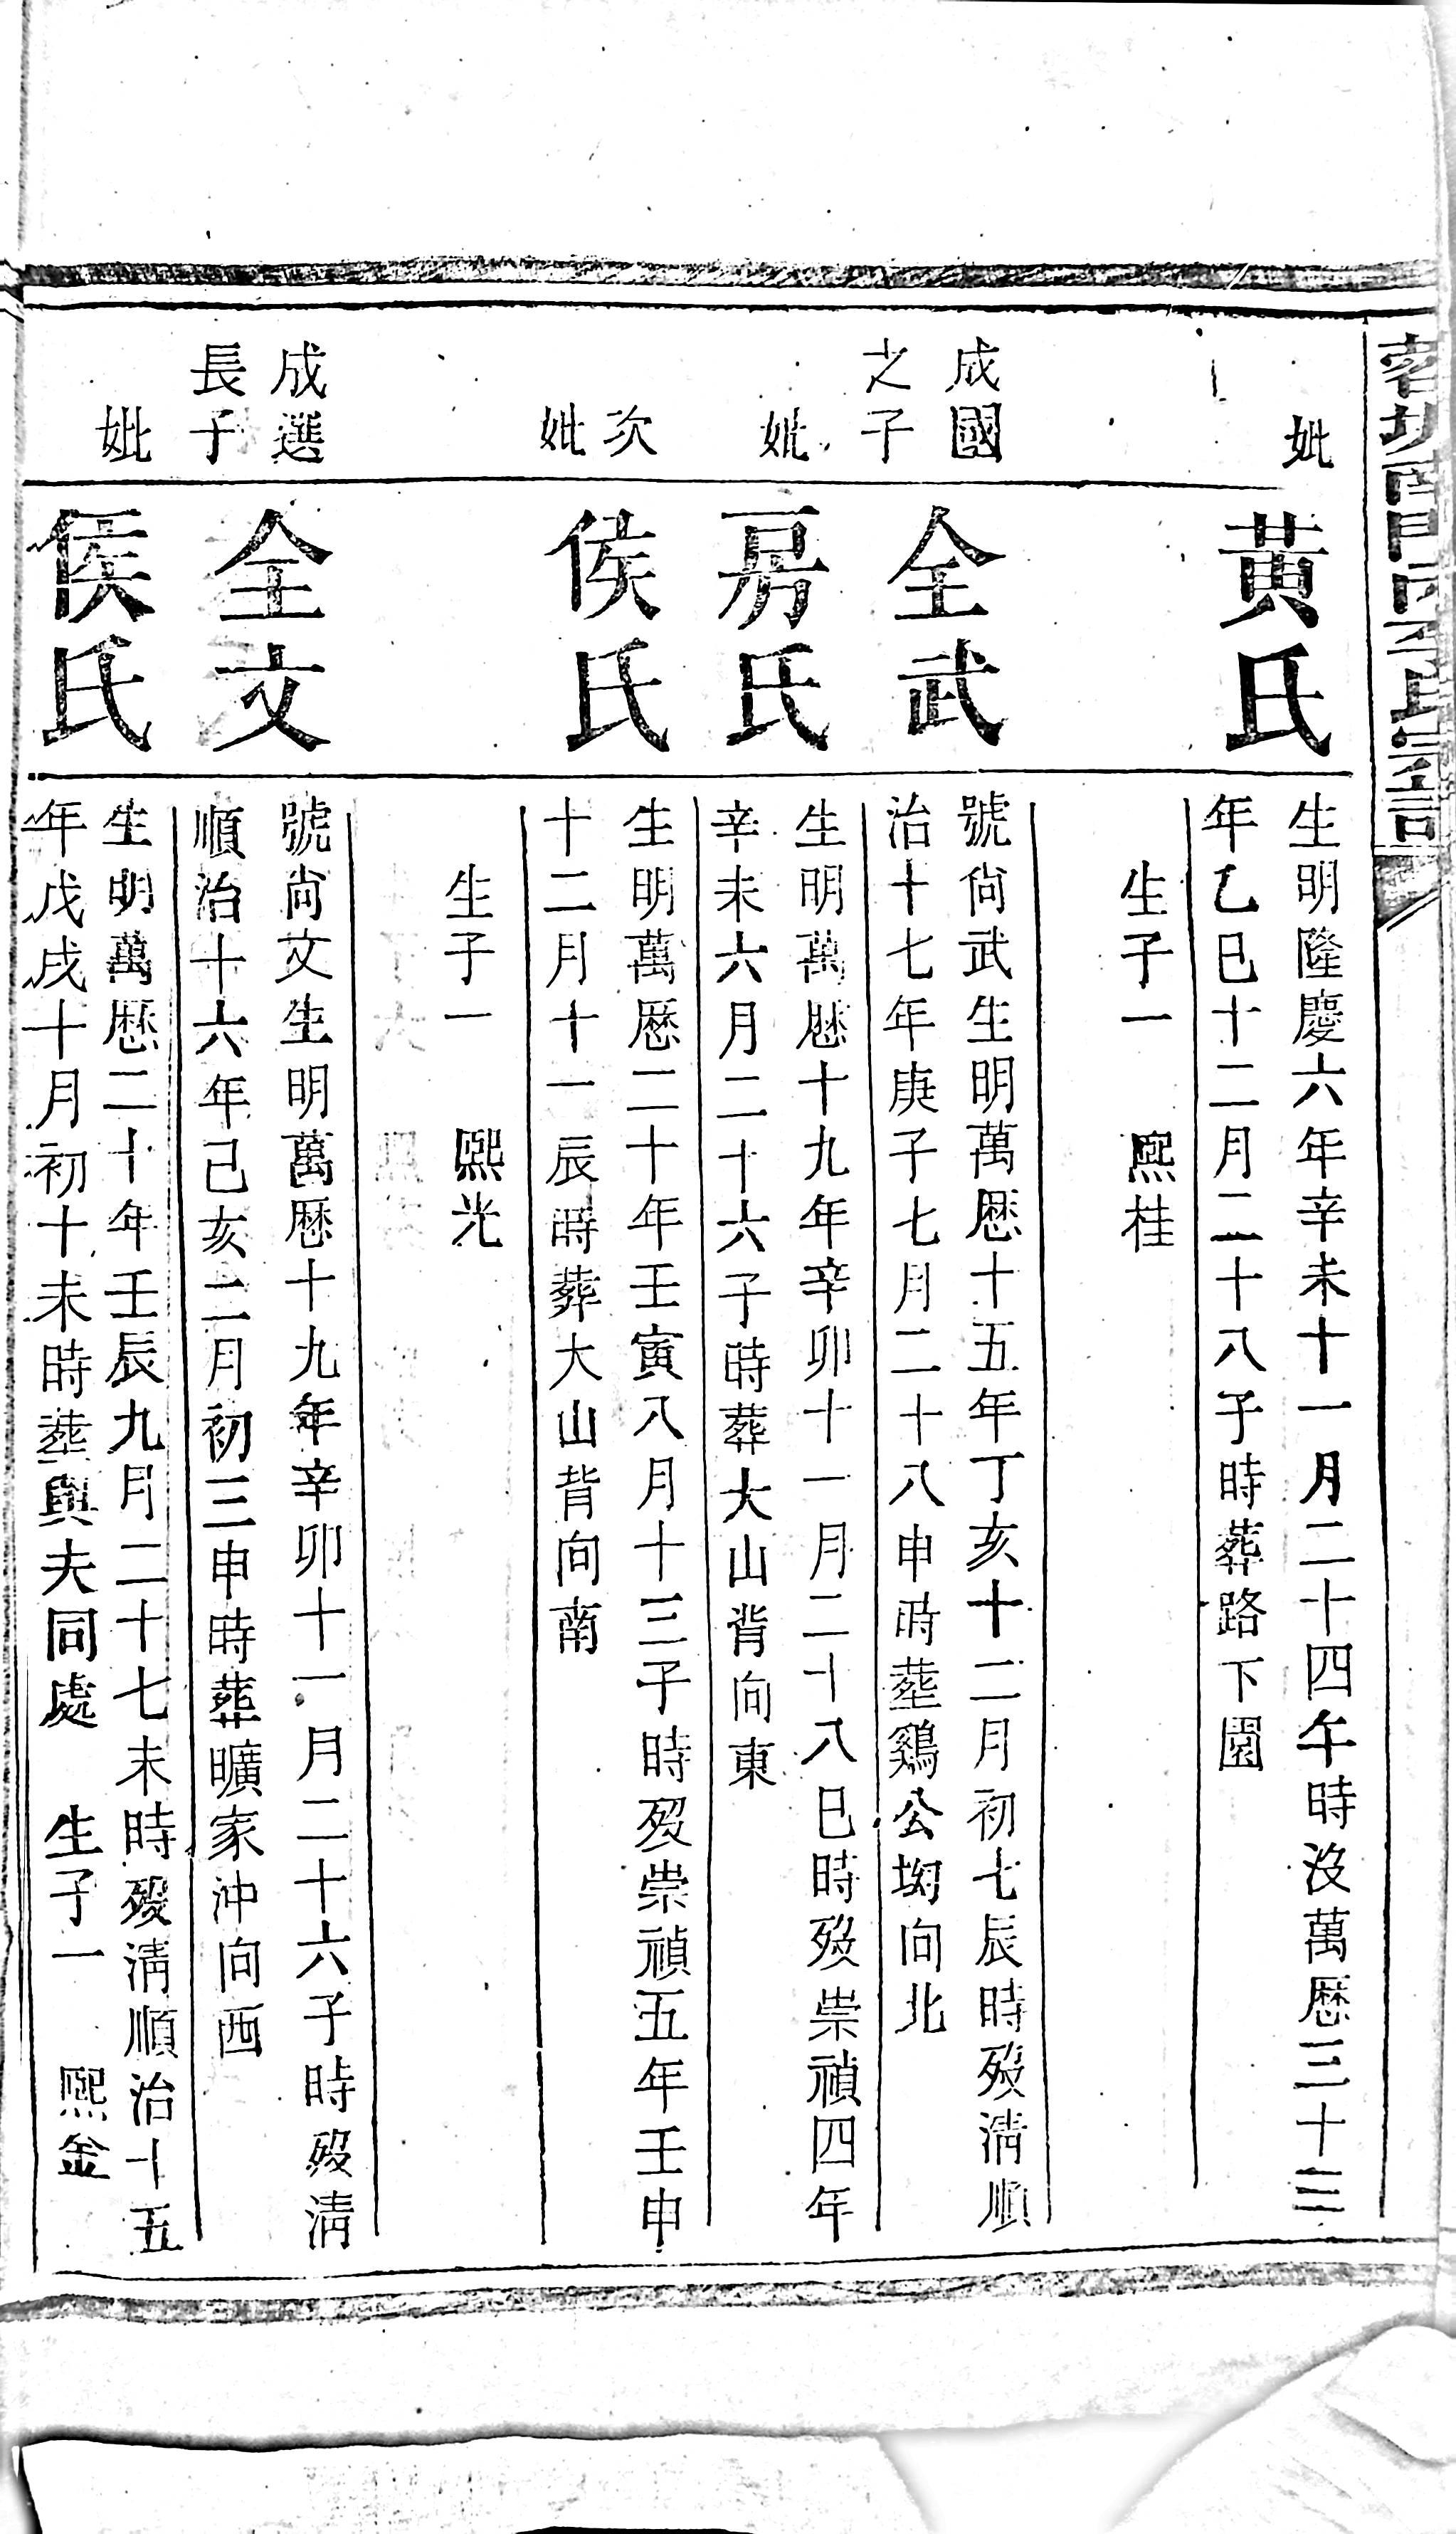 妣
黃氏
生明隆慶六年辛未十一月二十四午時没萬歷三十三
年乙巳十二月二十八子時葬路下園
生子一 熙桂
成國
之子
全武
號尙武生明萬歷十五年丁亥十二月初七辰時歿淸順
治十七年庚子七月二十八申時塟鷄公坳向北
妣
房氏
生明萬歷十九年辛卯十一月二十八巳時歿崇禎四年
辛未六月二十六子時葬大山背向東
次
妣
侯氏
生明萬歷二十年壬寅八月十三子時歿崇禎五年壬申
十二月十一辰時葬大山背向南
生子一 熙光
成選
長子
全文
號尙文生明萬歷十九年辛卯十一月二十六子時歿淸
順治十六年己亥二月初三申時葬曠家沖向西
妣
侯氏
生明萬歷二十年壬辰九月二十七未時歿淸順治十五
年戊戌十月初十未時塟與夫同處 生子一 熙金